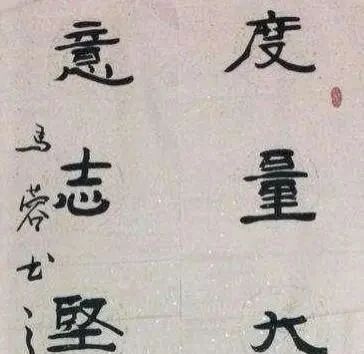 度量大
意志堅
馬蓉书